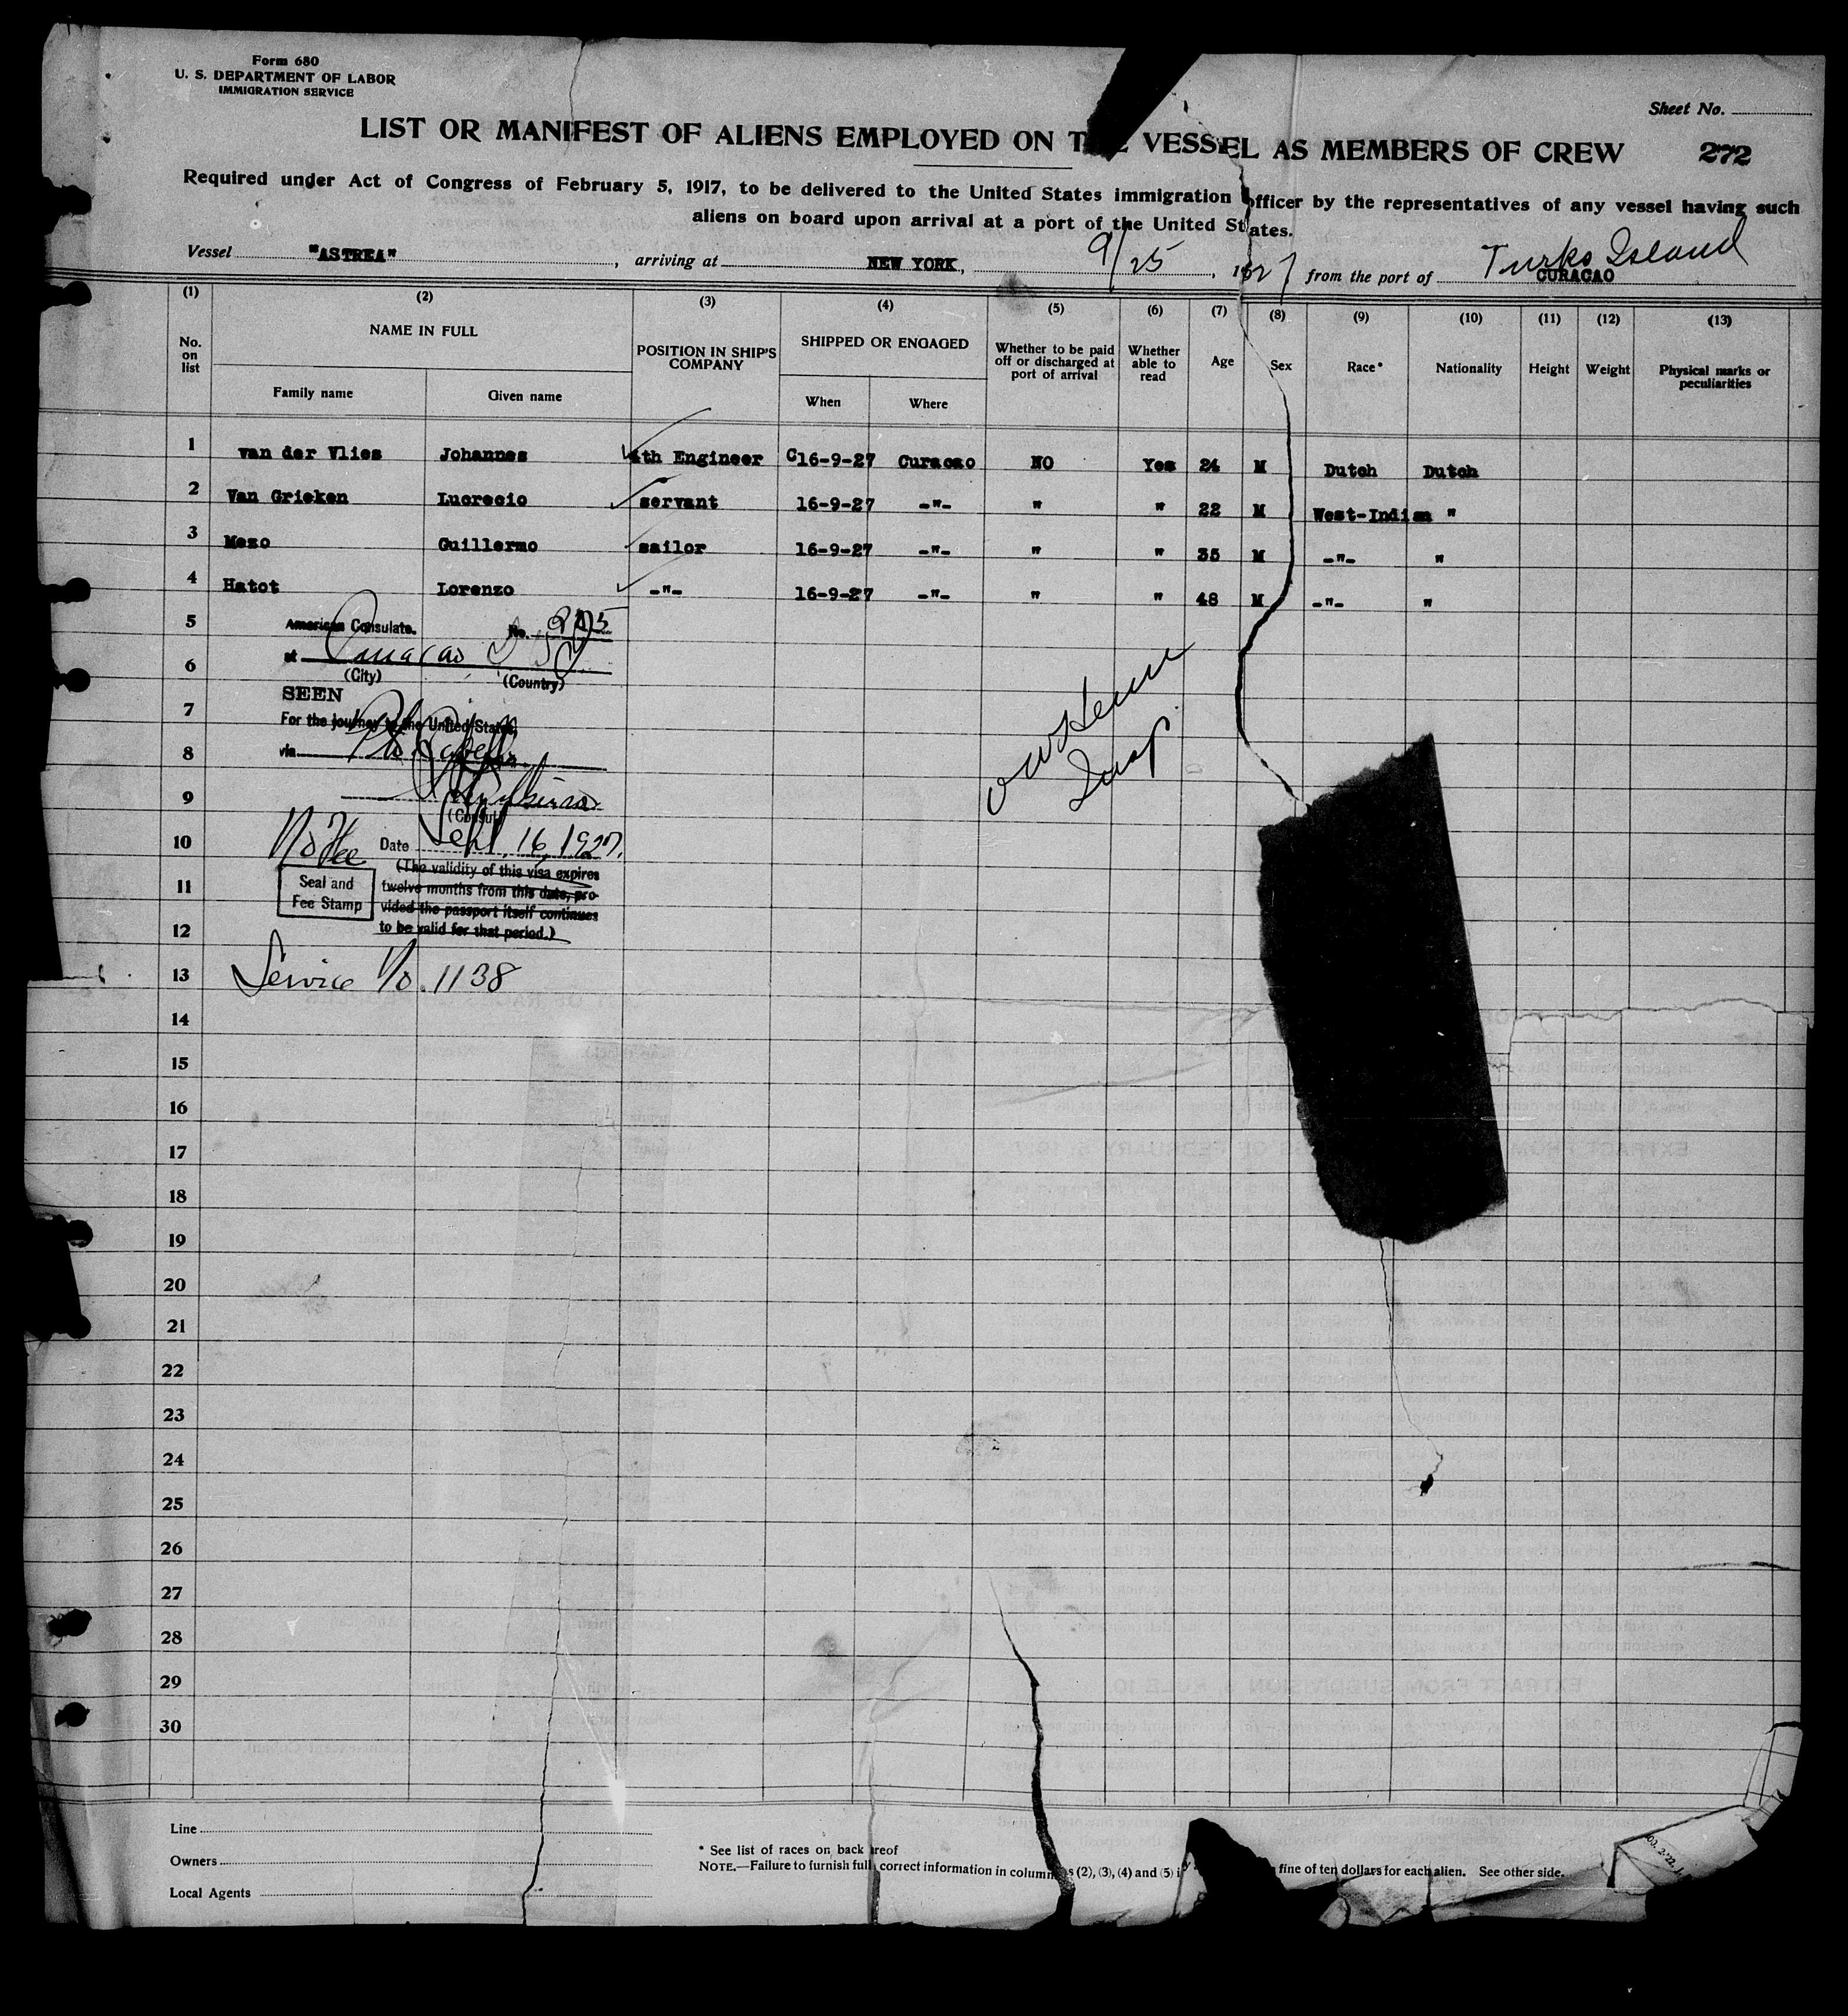 Form 680
U. S. DEPARTMENT OF LABOR
IMMIGRATION SERVICE
Sheet No.
LIST OR MANIFEST OF ALIENS EMPLOYED ON T E VESSEL AS MEMBERS OF CREW 272
Required under Act of Congress of February 5, 1917, to be delivered to the United States immigration officer by the representatives of any vessel having such
aliens on board upon arrival at a port of the United States.
Vessel "ASTREA", arriving at NEW YORK, 9/25, 1927 from the port of Turks Island CURACAO
(1) (2) (3) (4) (5) (6) (7) (8) (9) (10) (11) (12) (13)
No. on list NAME IN FULL POSITION IN SHIP'S COMPANY SHIPPED OR ENGAGED Whether to be paid off or discharged at port of arrival Whether able to read Age Sex Race* Nationality Height Weight Physical marks or peculiarities
Family name Given name When Where
1 van der Vlies Johannes 4th Engineer C16-9-27 Curacao NO Yes 24 M Dutch Dutch
2 Van Grieken Lucrecio servant 16-9-27 -"- " " 22 M West-Indian "
3 Mezo Guillermo sailor 16-9-27 -"- " " 35 M -"- "
4 Hatot Lorenzo -"- 16-9-27 -"- " " 48 M -"- "
5 American Consulate. No.
at Curacao
6 (City) (Country)
SEEN
7 For the journey to the United States,
8 via
9 (Consul)
10 No Fee Date Sept. 16, 1927.
(The validity of this visa expires
11 Seal and Fee Stamp twelve months from this date, pro-
vided the passport itself continues
12 to be valid for that period.)
13 Service No. 1138
14
15
16
17
18
19
20
21
22
23
24
25
26
27
28
29
30
Line
Owners
Local Agents
* See list of races on back ereof
NOTE.—Failure to furnish full correct information in columns (2), (3), (4) and (5) i fine of ten dollars for each alien. See other side.